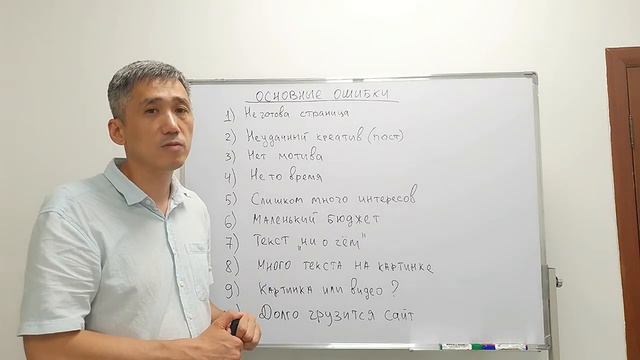 ОСНОВНЫЕ ОШИБКИ
1) Не готова страница
2) Неудачный креатив (пост)
3) Нет мотива
4) Не то время
5) Слишком много интересов
6) Маленький бюджет
7) Текст "ни о чём"
8) Много текста на картинке
9) Картинка или видео?
) Долго грузится сайт